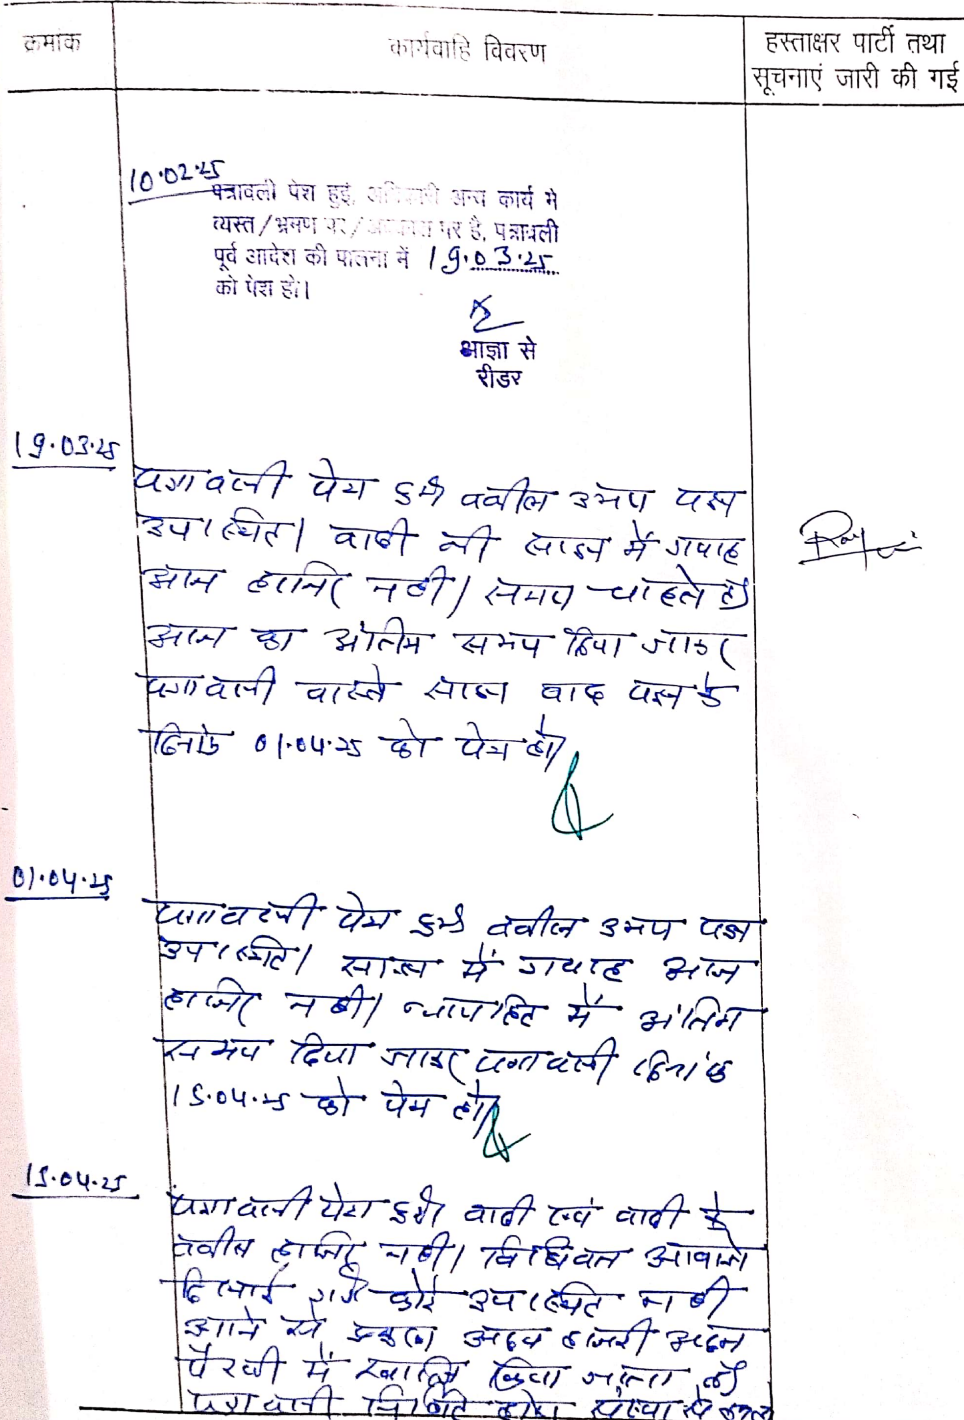 क्रमांक
कार्यवाहि विवरण
हस्ताक्षर पार्टी तथा
सूचनाएं जारी की गई
10.02.25
पत्रावली पेश हुई, अधिकारी अन्य कार्य मे
व्यस्त/भ्रमण पर/अवकाश पर है, पत्रावली
पूर्व आदेश की पालना में 19.03.25
को पेश हो।
आज्ञा से
रीडर
19.03.25
पत्रावली पेश हुई वकील उभय पक्ष
उपस्थित। वादी की साक्ष्य में गवाह
आज हाजिर नही। समय चाहते है
आज का अंतिम समय दिया जाकर
पत्रावली वास्ते साक्ष्य वाद पक्ष के
दिनांक 01.04.25 को पेश हो।
01.04.25
पत्रावली पेश हुई वकील उभय पक्ष
उपस्थित। साक्ष्य में गवाह आज
हाजिर नही। न्यायहित में अंतिम
समय दिया जाकर पत्रावली दिनांक
15.04.25 को पेश हो।
15.04.25
पत्रावली पेश हुई वादी एवं वादी के
वकील हाजिर नही। विधिवत आवाजे
दिलाई गई कोई उपस्थित नही
आने से प्रकरण अदम हाजरी अदम
पैरवी में खारिज किया जाता है
पत्रावली